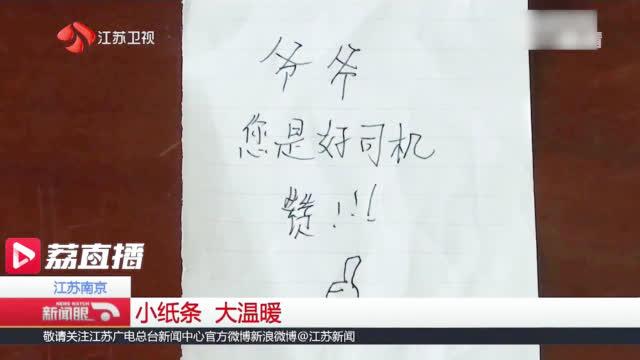 江苏卫视
爷爷
您是好司机
赞!!!
荔直播
江苏南京
NEWS WATCH
新闻眼
小纸条 大温暖
敬请关注江苏广电总台新闻中心官方微博新浪微博@江苏新闻